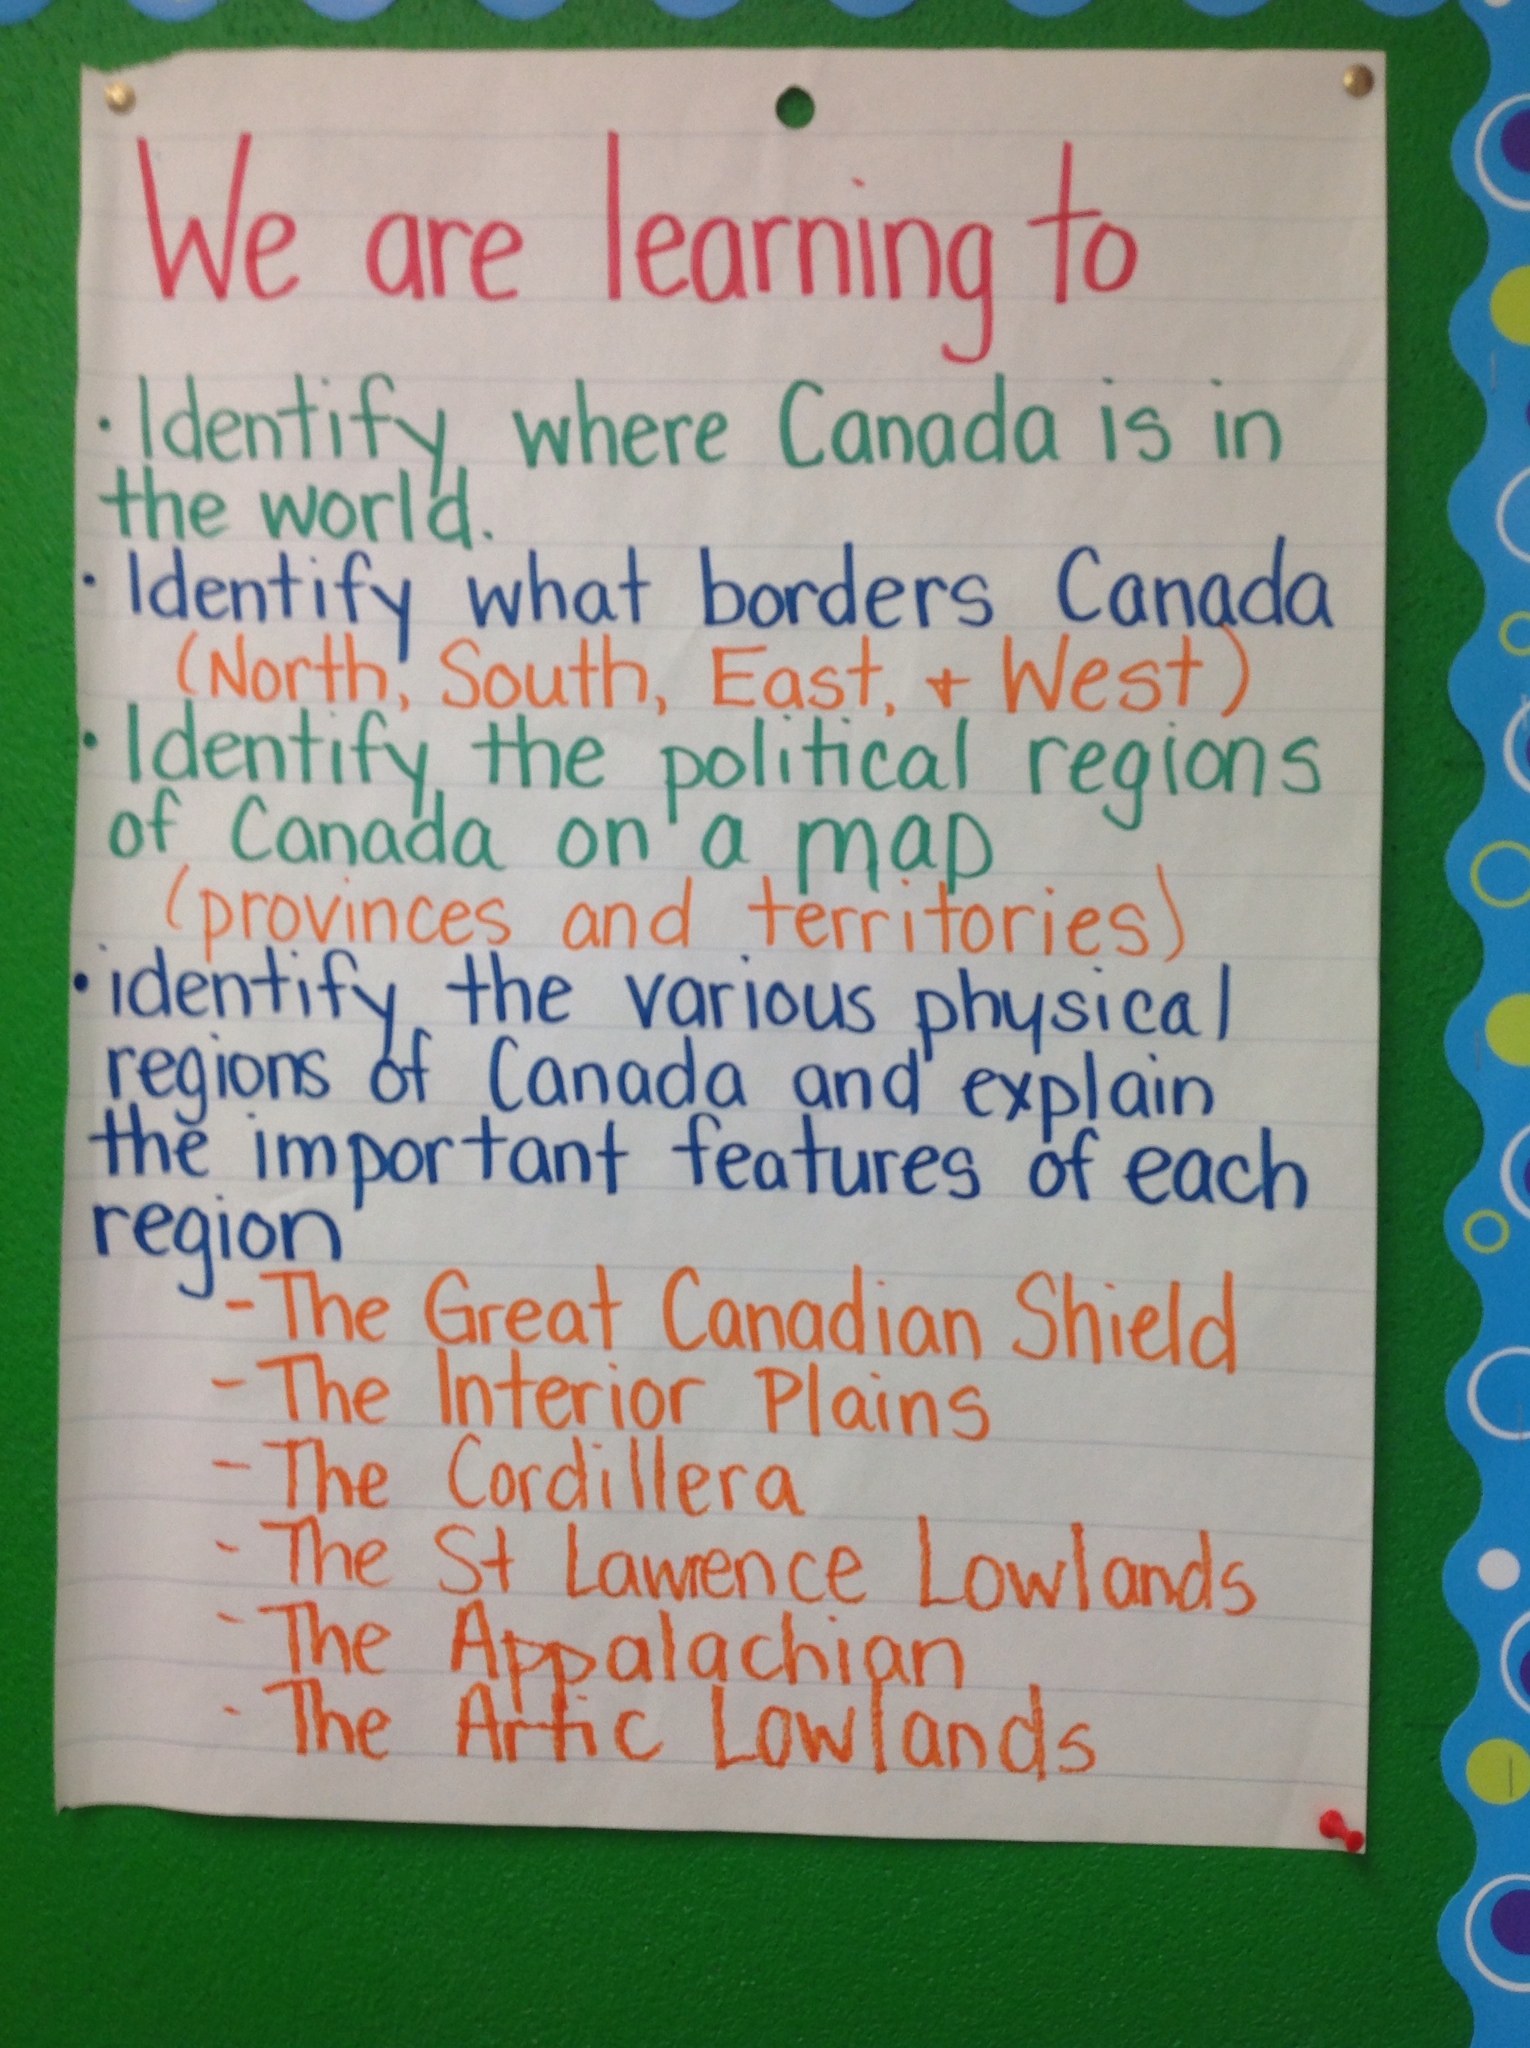 We are learning to
• Identify where Canada is in
the world.
• Identify what borders Canada
(North, South, East, + West)
• Identify the political regions
of Canada on a map
(provinces and territories)
• identify the various physical
regions of Canada and explain
the important features of each
region
- The Great Canadian Shield
- The Interior Plains
- The Cordillera
- The St Lawrence Lowlands
- The Appalachian
- The Artic Lowlands